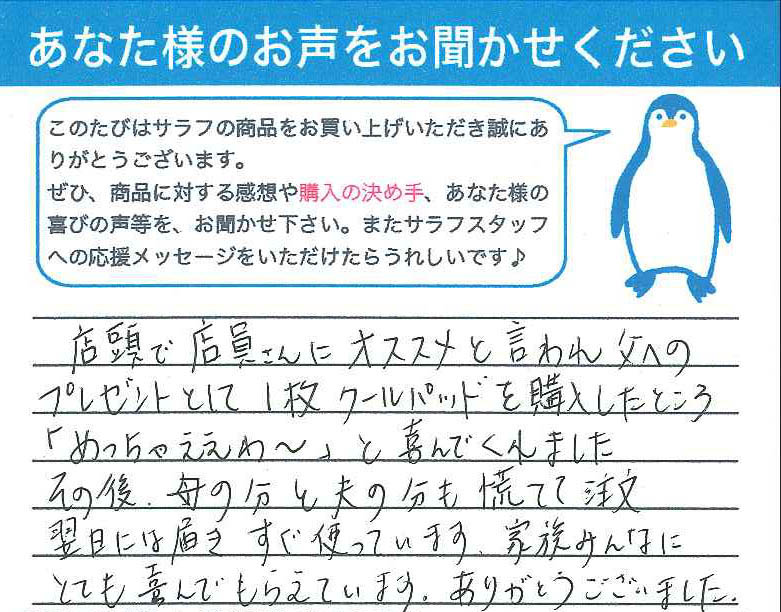 あなた様のお声をお聞かせください
このたびはサラフの商品をお買い上げいただき誠にあ
りがとうございます。
ぜひ、商品に対する感想や購入の決め手、あなた様の
喜びの声等を、お聞かせ下さい。またサラフスタッフ
への応援メッセージをいただけたらうれしいです♪
店頭で店員さんにオススメと言われ父への
プレゼントとして1枚クールパッドを購入したところ
「めっちゃええわ〜」と喜んでくれました
その後、母の分と夫の分も慌てて注文
翌日には届きすぐ使っています、家族みんなに
とても喜んでもらえています。ありがとうございました。